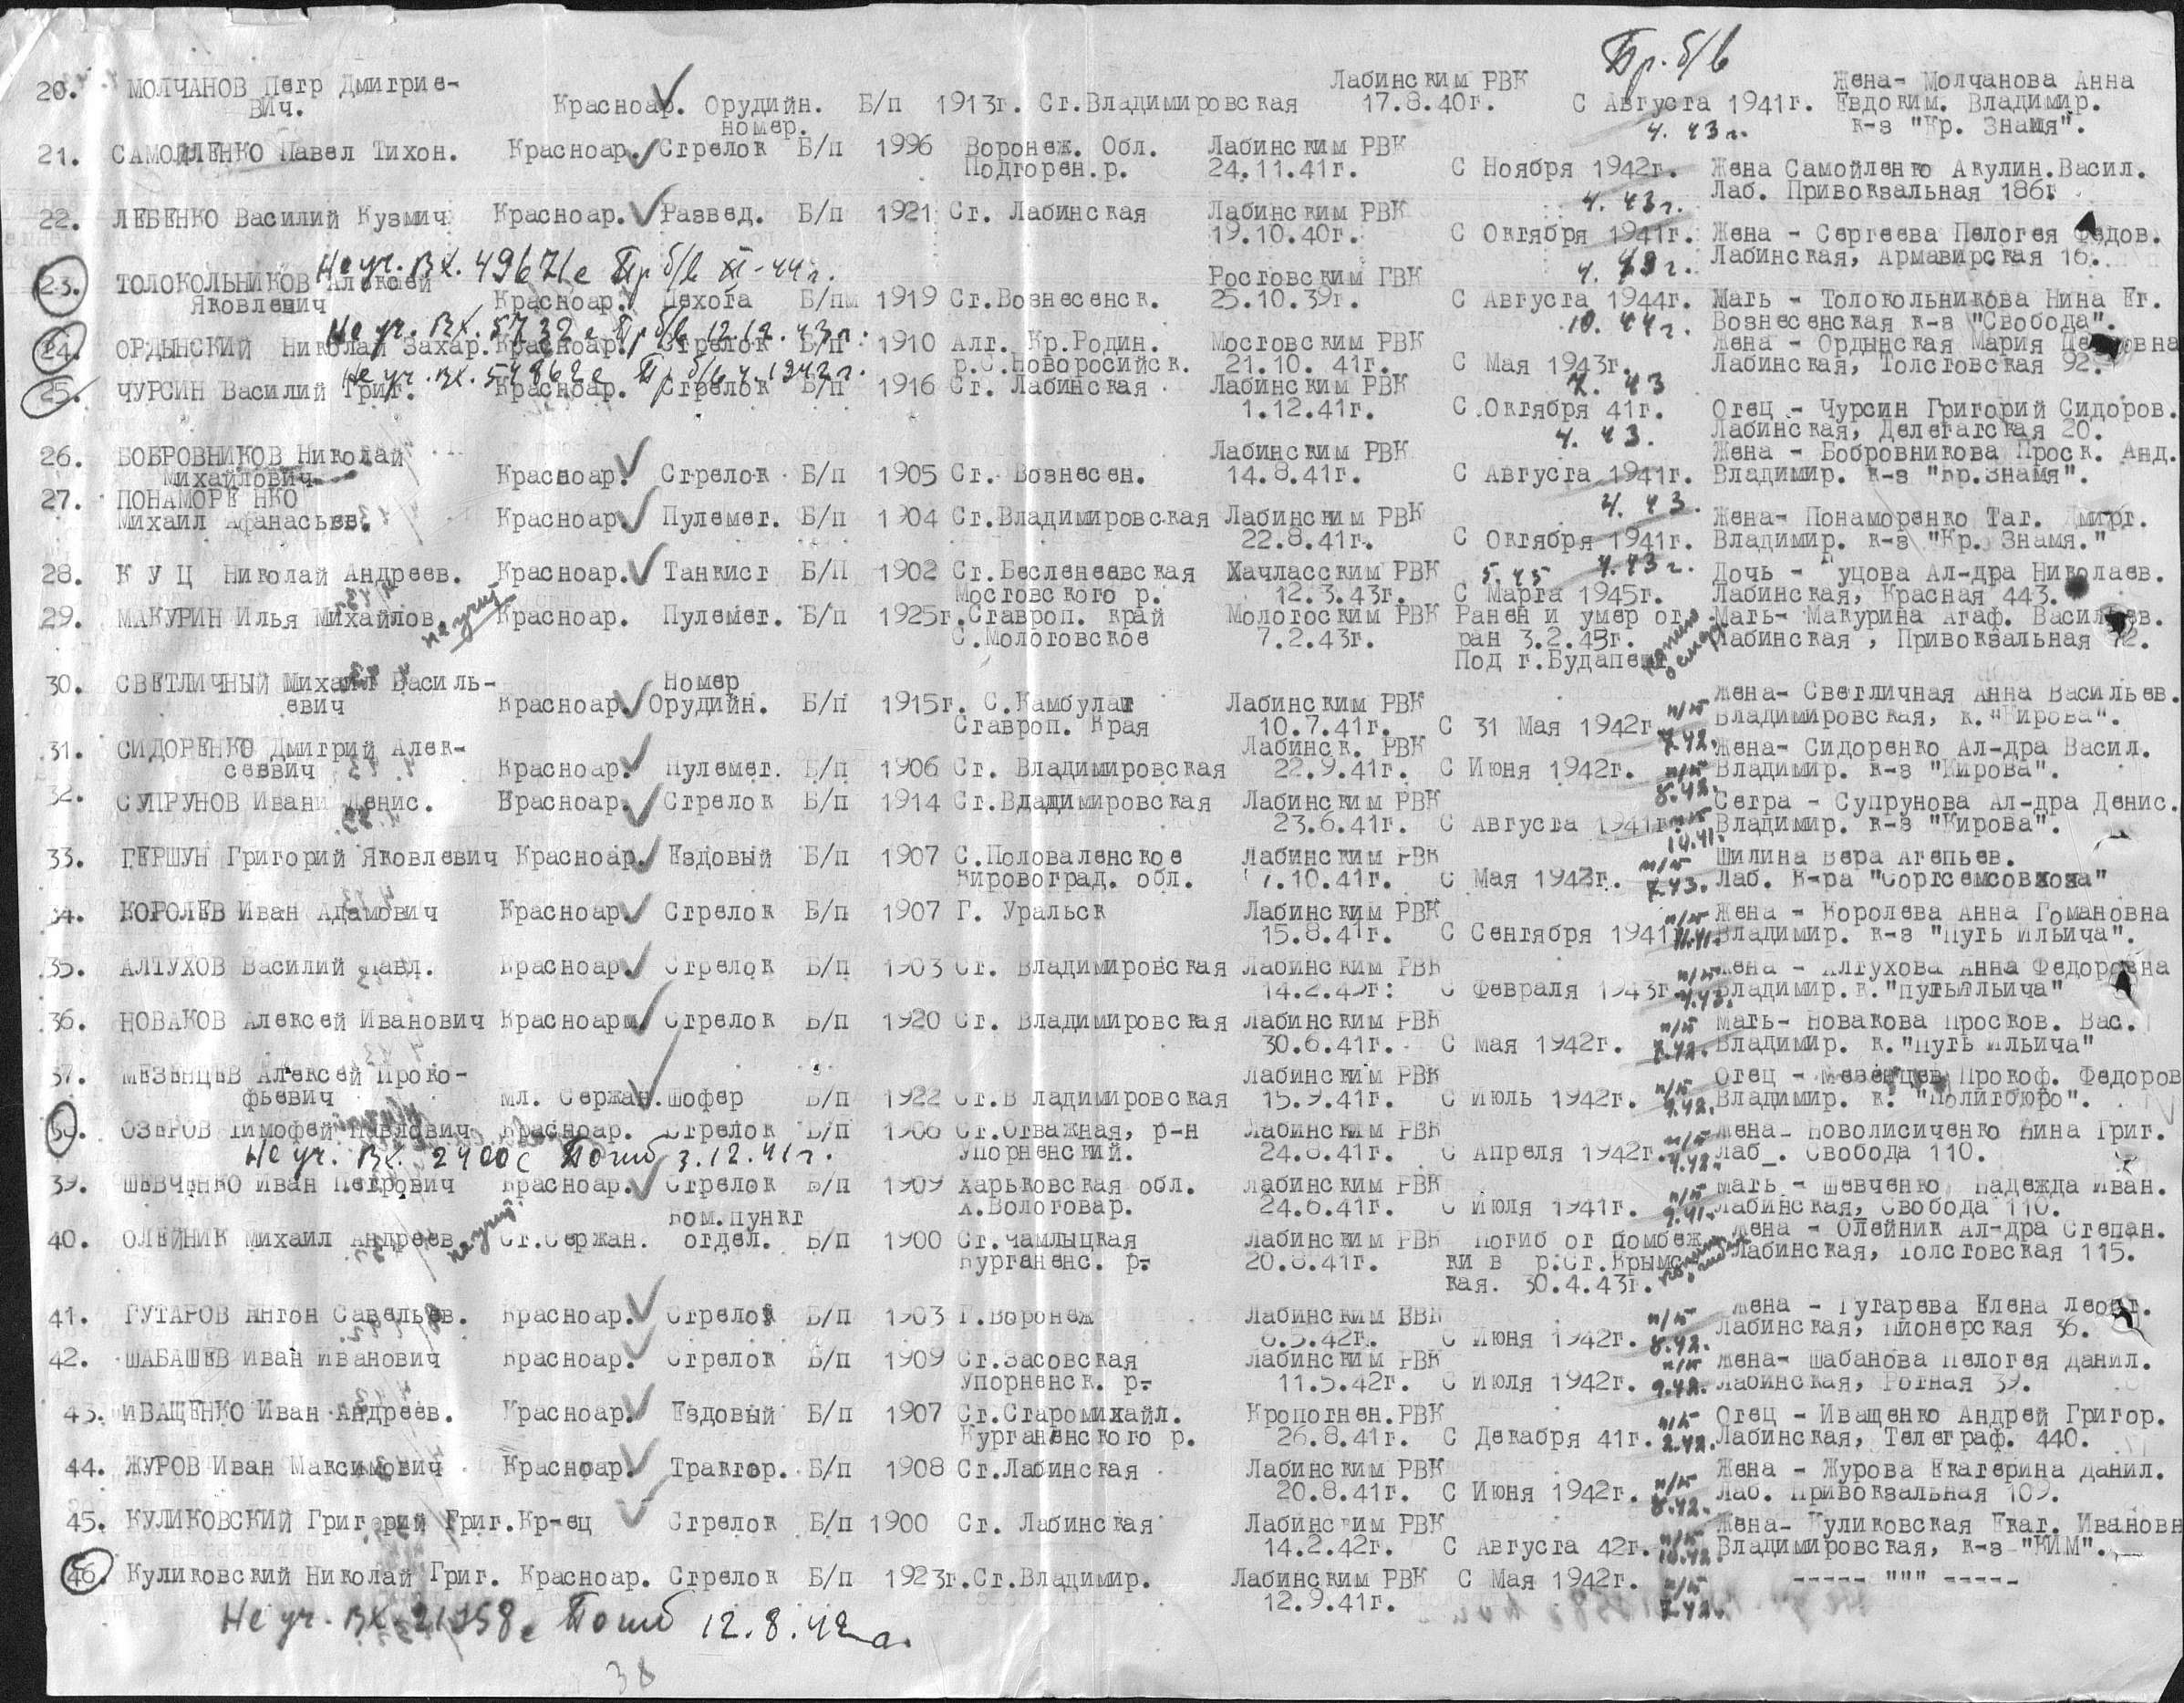 Пр. б/в
20. МОЛЧАНОВ Петр Дмитрие- Лабинским РВК Жена- Молчанова Анна
вич. Красноар. Орудийн. Б/п 1913г. Ст.Владимировская 17.8.40г. С Августа 1941г. Евдоким. Владимир.
номер. 4. 43г. к-з "Кр. Знамя".
21. САМОЙЛЕНКО Павел Тихон. Красноар. Стрелок Б/п 1996 Воронеж. Обл. Лабинским РВК
Подгорен.р. 24.11.41г. С Ноября 1942г. Жена Самойленко Акулин.Васил.
4. 43г. Лаб. Привокзальная 186г
22. ЛЕБЕНКО Василий Кузмич Красноар. Развед. Б/п 1921 Ст. Лабинская Лабинским РВК
19.10.40г. С Октября 1941г. Жена - Сергеева Пелогея Федов.
Не уч. Вх. 49671с Пр б/в XI-44г. 4. 43г. Лабинская, Армавирская 16.
23. ТОЛОКОЛЬНИКОВ Алексей Ростовским ГВК
Яковлевич Красноар. Пехота Б/пм 1919 Ст.Вознесенск. 25.10.39г. С Августа 1944г. Мать - Толокольникова Нина Ег.
Не уч. Вх. 5732с Пр б/в 12.12.43г. 10. 44г. Вознесенская к-з "Свобода".
24. ОРДЫНСКИЙ Николай Захар. Красноар. Стрелок Б/п 1910 Алт. Кр.Родин. Мостовским РВК Жена - Ордынская Мария
р.С.Новоросийск. 21.10. 41г. С Мая 1943г. Лабинская, Толстовская 92.
Не уч. Вх. 54862с Пр б/в 4.1942г. 7. 43
25. ЧУРСИН Василий Григ. Красноар. Стрелок Б/п 1916 Ст. Лабинская Лабинским РВК
1.12.41г. С Октября 41г. Отец - Чурсин Григорий Сидоров.
4. 43. Лабинская, Делегатская 20.
26. БОБРОВНИКОВ Николай Лабинским РВК Жена - Бобровникова Проск. Анд.
Михайлович Красноар. Стрелок Б/п 1905 Ст. Вознесен. 14.8.41г. С Августа 1941г. Владимир. к-з "Кр.Знамя".
27. ПОНАМОРЕНКО 4. 43.
Михаил Афанасьев. Красноар. Пулемет. Б/п 1904 Ст.Владимировская Лабинским РВК Жена- Понаморенко Тат. Дмитг.
22.8.41г. С Октября 1941г. Владимир. к-з "Кр. Знамя."
28. К У Ц Николай Андреев. Красноар. Танкист Б/П 1902 Ст.Бесленеевская Хачласским РВК 5.45 4.43г. Дочь - Куцова Ал-дра Николаев.
Мостовского р. 12.3.43г. С Марта 1945г. Лабинская, Красная 443.
29. МАКУРИН Илья Михайлов не учт Красноар. Пулемет. Б/п 1925г. Ставроп. край Молотоским РВК Ранен и умер от Мать- Макурина Агаф. Васильев.
С.Молотовское 7.2.43г. ран 3.2.45г. Лабинская, Привокзальная 92.
Под г.Будапешт
30. СВЕТЛИЧНЫЙ Михаил Василь- Номер Жена- Светличная Анна Васильев.
евич Красноар. Орудийн. Б/п 1915г. С.Камбулат Лабинским РВК п/п Владимировская, к."Кирова".
Ставроп. Края 10.7.41г. С 31 Мая 1942г. 7.42.
31. СИДОРЕНКО Дмитрий Алек- Лабинск. РВК Жена- Сидоренко Ал-дра Васил.
сеевич Красноар. Пулемет. Б/п 1906 Ст. Владимировская 22.9.41г. С Июня 1942г. п/п Владимир. к-з "Кирова".
8.42.
32. СУПРУНОВ Ивани Денис. Красноар. Стрелок Б/п 1914 Ст.Владимировская Лабинским РВК Сетра - Супрунова Ал-дра Денис.
23.6.41г. С Августа 1941г. п/п Владимир. к-з "Кирова".
10.41.
33. ГЕРШУН Григорий Яковлевич Красноар. Ездовый Б/п 1907 С.Половаленское Лабинским РВК п/п Шилина Вера Агепьев.
Кировоград. обл. 17.10.41г. С Мая 1943г. 7.43. Лаб. К-ра "Сортсемсовхоза"
34. КОРОЛЕВ Иван Адамович Красноар. Стрелок Б/п 1907 Г. Уральск Лабинским РВК п/п Жена - Королева Анна Романовна
15.8.41г. С Сентября 1941 11.41. Владимир. к-з "Путь Ильича".
35. АЛТУХОВ Василий Павл. Красноар. Стрелок Б/п 1903 Ст. Владимировская Лабинским РВК п/п Жена - Алтухова Анна Федоровна
14.2.43г. С Февраля 1943г 4.43. Владимир.к."Путь Ильича"
36. НОВАКОВ Алексей Иванович Красноарм. Стрелок Б/п 1920 Ст. Владимировская Лабинским РВК п/п Мать- Новакова Просков. Вас.
30.6.41г. С мая 1942г. 7.42. Владимир. к."Путь Ильича"
37. МЕЗЕНЦЕВ Алексей Проко- Лабинским РВК Отец - Мезенцев Прокоф. Федоров
фьевич мл. Сержан. Шофер Б/п 1922 Ст.Владимировская 15.9.41г. С Июль 1942г. п/п 9.42. Владимир. к. "Политбюро".
38. ОЗЕРОВ Тимофей Павлович Красноар. Стрелок Б/п 1906 Ст.Отважная, р-н Лабинским РВК п/п Жена- Новолисиченко Нина Григ.
Не уч. Вх. 2400с Погиб 3.12.41г. Упорненский. 24.8.41г. С Апреля 1942г. 4.42. Лаб_. Свобода 110.
39. ШЕВЧЕНКО Иван Петрович Красноар. Стрелок Б/п 1909 Харьковская обл. Лабинским РВК п/п Мать - Шевченко Надежда Иван.
Х.Вологовар. 24.6.41г. С Июля 1941г. 9.41. Лабинская, Свобода 110.
Ком.пункт
40. ОЛЕЙНИК Михаил Андреев не учт. Ст.Сержан. отдел. Б/п 1900 Ст.Чамлыцкая Лабинским РВК Погиб от бомбеж Жена - Олейник Ал-дра Степан.
Курганенс. р- 20.8.41г. ки в р.Ст.Крымс Лабинская, Толстовская 115.
кая. 30.4.43г.
41. ГУТАРОВ Антон Савельев. Красноар. Стрелой Б/п 1903 Г.Воронеж Лабинским ВВК п/п Жена - Гутарева Елена Леонт.
6.5.42г. С Июня 1942г. 8.42. Лабинская, Пионерская 36.
42. ШАБАШЕВ Иван Иванович Красноар. Стрелок Б/п 1909 Ст.Засовская Лабинским РВК п/п Жена- Шабанова Пелогея Данил.
Упорненск. р- 11.5.42г. С Июля 1942г. 9.42. Лабинская, Ротная 39.
43. ИВАЩЕНКО Иван Андреев. Красноар. Ездовый Б/п 1907 Ст.Старомихайл. Кропотнен.РВК п/п Отец - Иващенко Андрей Григор.
Курганенского р. 26.8.41г. С Декабря 41г. 2.42. Лабинская, Телеграф. 440.
44. ЖУРОВ Иван Максимович Красноар. Трактор. Б/п 1908 Ст.Лабинская Лабинским РВК п/п Жена - Журова Екатерина Данил.
20.8.41г. С Июня 1942г. 8.42. Лаб. Привокзальная 109.
45. КУЛИКОВСКИЙ Григорий Григ. Кр-ец Стрелок Б/п 1900 Ст. Лабинская Лабинским РВК Жена- Куликовская Екат. Ивановн
14.2.42г. С Августа 42г. п/п 10.42. Владимировская, к-з "КИМ".
46. Куликовский Николай Григ. Красноар. Стрелок Б/п 1923г. Ст.Владимир. Лабинским РВК С Мая 1942г. п/п ----- """ -----
12.9.41г. 7.42.
Не уч. Вх. 21958с Погиб 12.8.42г.
38